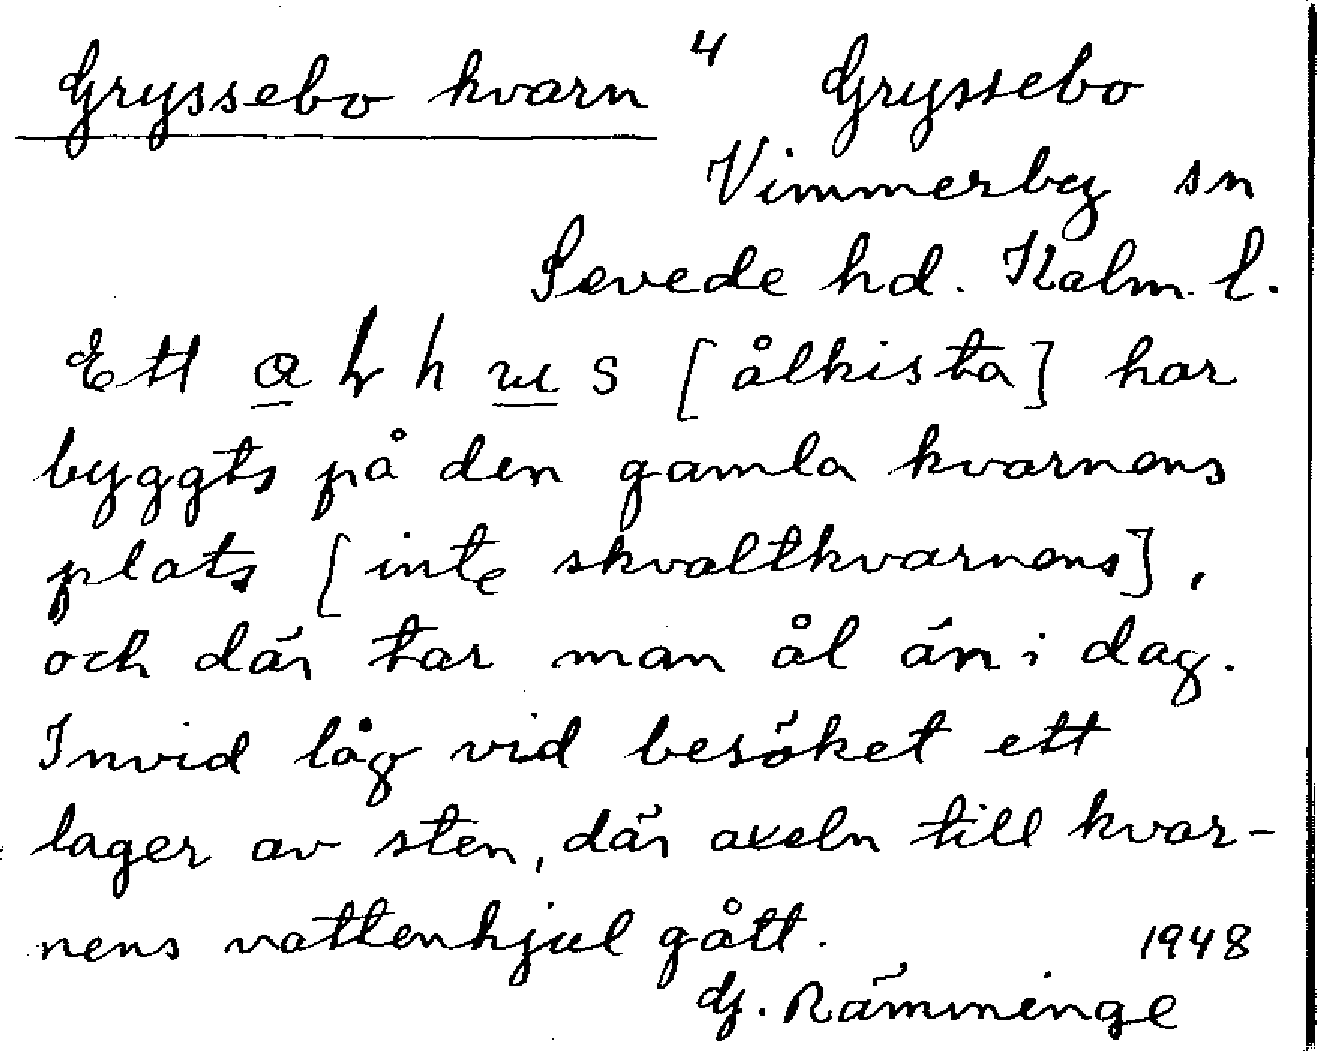 Gryssebo kvarn 4 Gryssebo
Vimmerby sn
Sevede hd. Kalm. l.
Ett [ålkista] har
byggts på den gamla kvarnens
plats [inte skvaltkvarnens],
och där tar man ål än i dag.
Invid låg vid besöket ett
lager av sten, där axeln till kvar-
nens vattenhjul gått. 1948
G. Rämminge